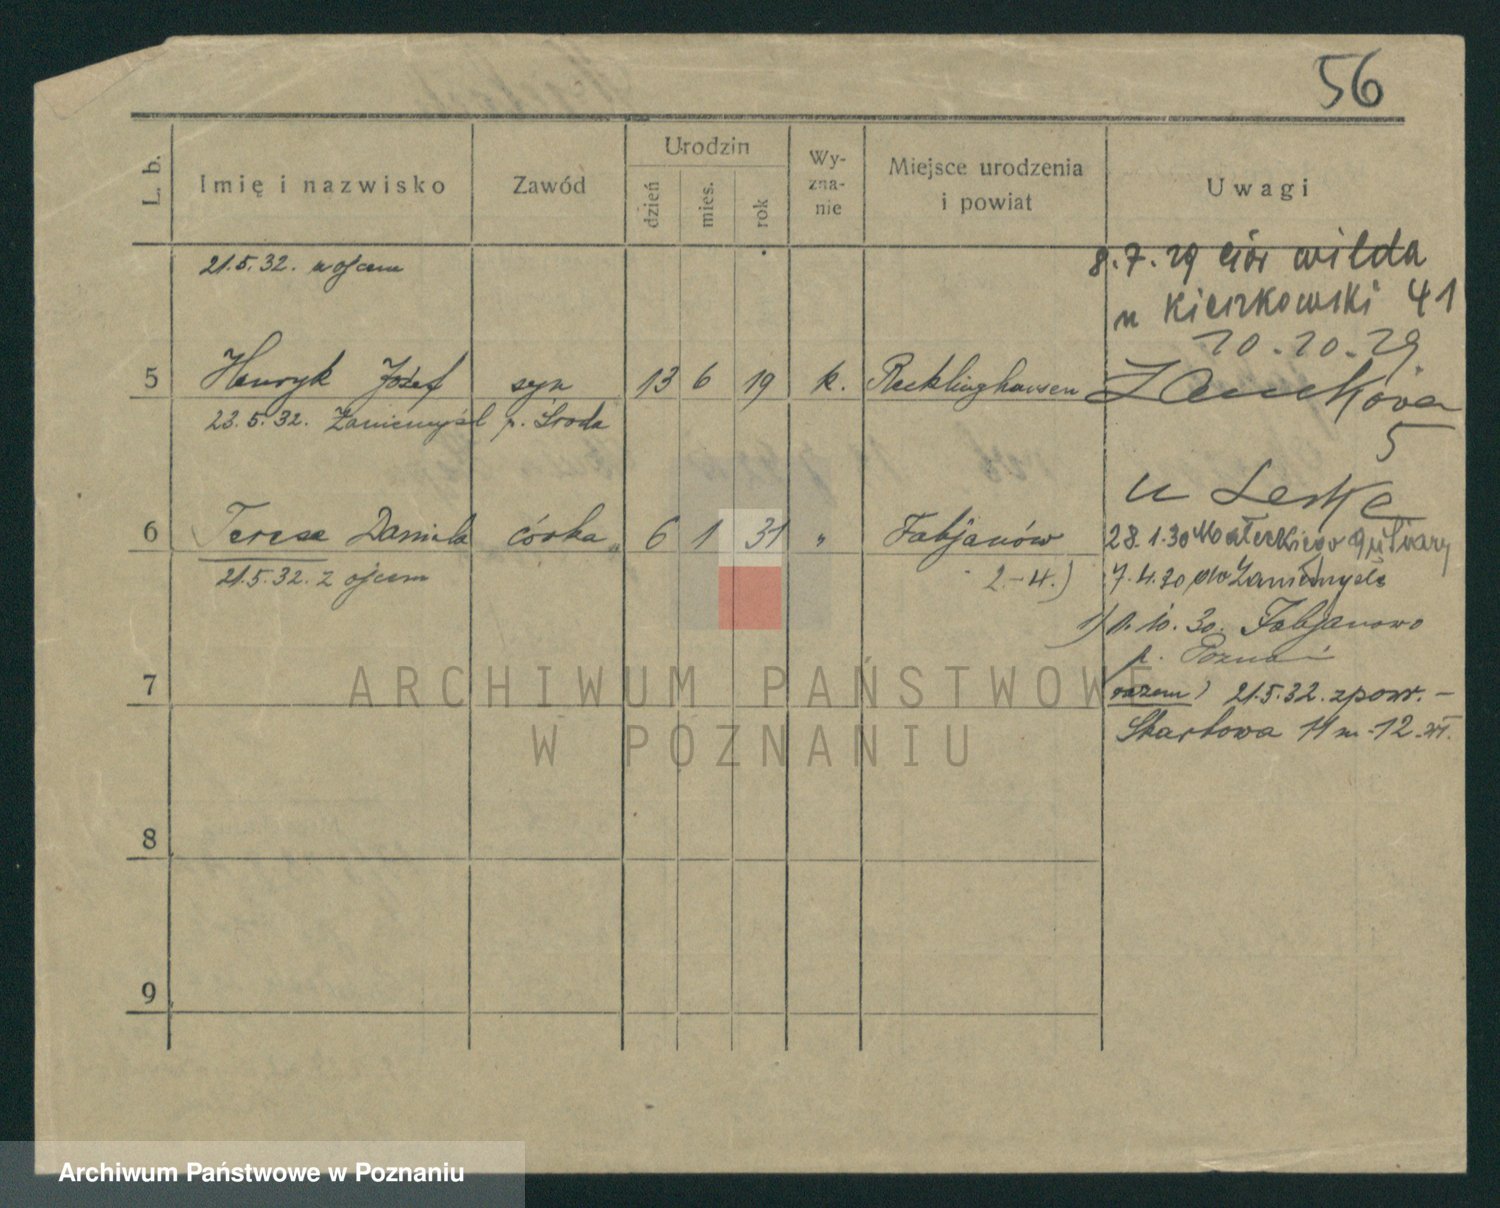 56
L. b.
Imię i nazwisko
Zawód
Urodzin
dzień
mies.
rok
Wy-
zna-
nie
Miejsce urodzenia
i powiat
Uwagi
21.5.32. z ojcem
8.7.29 Wilda
u 41
20.10.29
5 Henryk Józef syn 13 6 19 k. Recklinghausen
23.5.32. Zaniemyśl p. Środa
Zamkowa
5
u Leske
6 Teresa Daniela córka 6 1 31 " Fabjanów
2.-4.)
21.5.32. z ojcem
28.1.30 Małeckiego 9 u
7.4.30 do Zaniemyśla
1) 1.10.30. Fabjanowo
p. Poznań
razem) 21.5.32. zpow. -
Skarbowa 11 m. 12.
7
8
9
ARCHIWUM PAŃSTWOWE
W POZNANIU
Archiwum Państwowe w Poznaniu